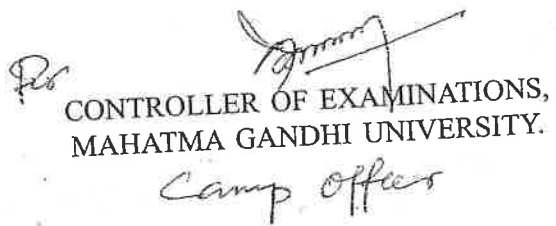 For
CONTROLLER OF EXAMINATIONS,
MAHATMA GANDHI UNIVERSITY.
Camp Officer